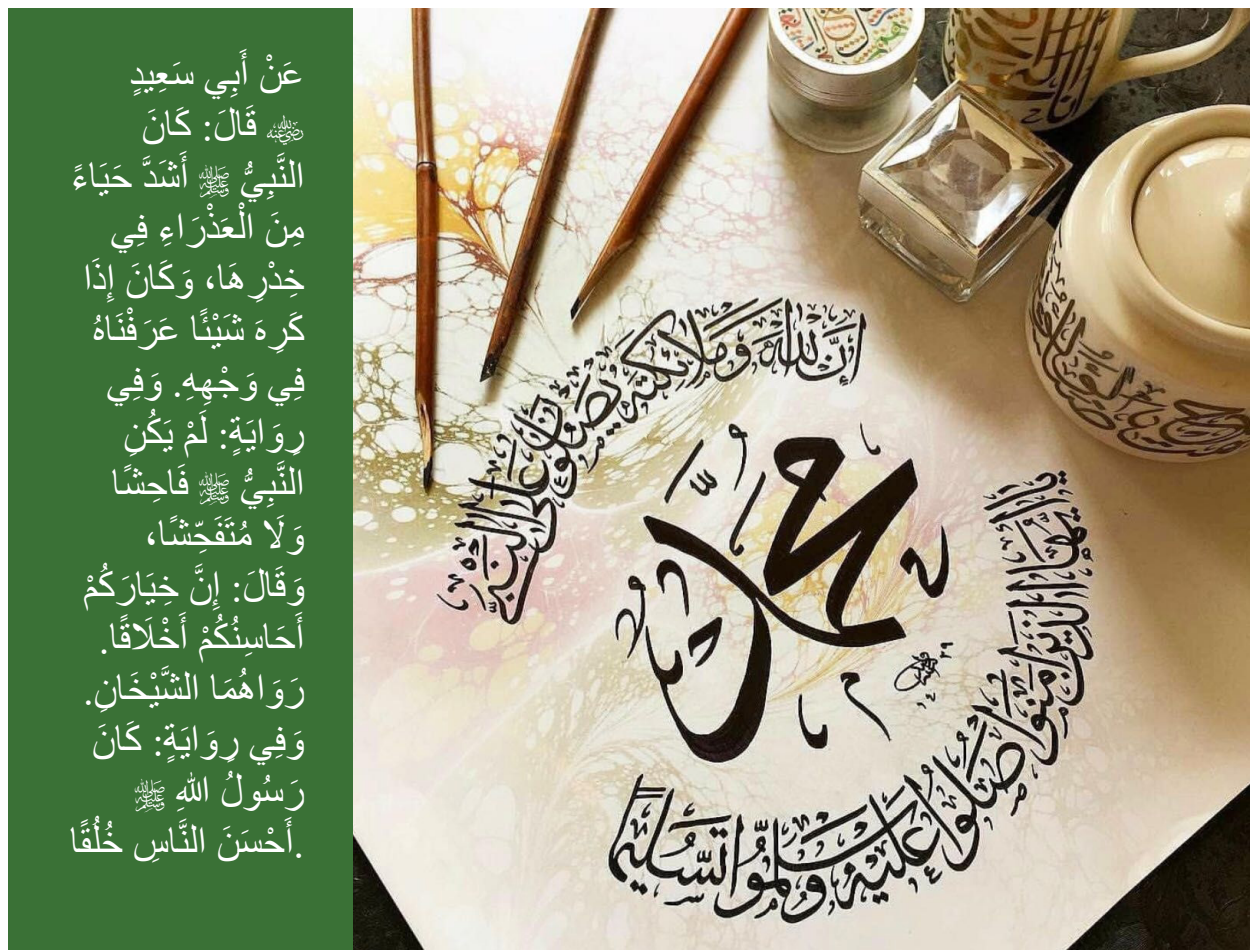 عَنْ أَبِي سَعِيدٍ
ﷺ قَالَ: كَانَ
النَّبِيُّ ﷺ أَشَدَّ حَيَاءً
مِنَ الْعَذْرَاءِ فِي
خِدْرِهَا، وَكَانَ إِذَا
كَرِهَ شَيْئًا عَرَفْنَاهُ
فِي وَجْهِهِ. وَفِي
رِوَايَةٍ: لَمْ يَكُنِ
النَّبِيُّ ﷺ فَاحِشًا
وَلَا مُتَفَحِّشًا،
وَقَالَ: إِنَّ خِيَارَكُمْ
أَحَاسِنُكُمْ أَخْلَاقًا.
رَوَاهُمَا الشَّيْخَانِ.
وَفِي رِوَايَةٍ: كَانَ
رَسُولُ اللهِ ﷺ
أَحْسَنَ النَّاسِ خُلُقًا.
إن الله وملائكته يصلون على النبي
محمد
يا أيها الذين آمنوا صلوا عليه وسلموا تسليما